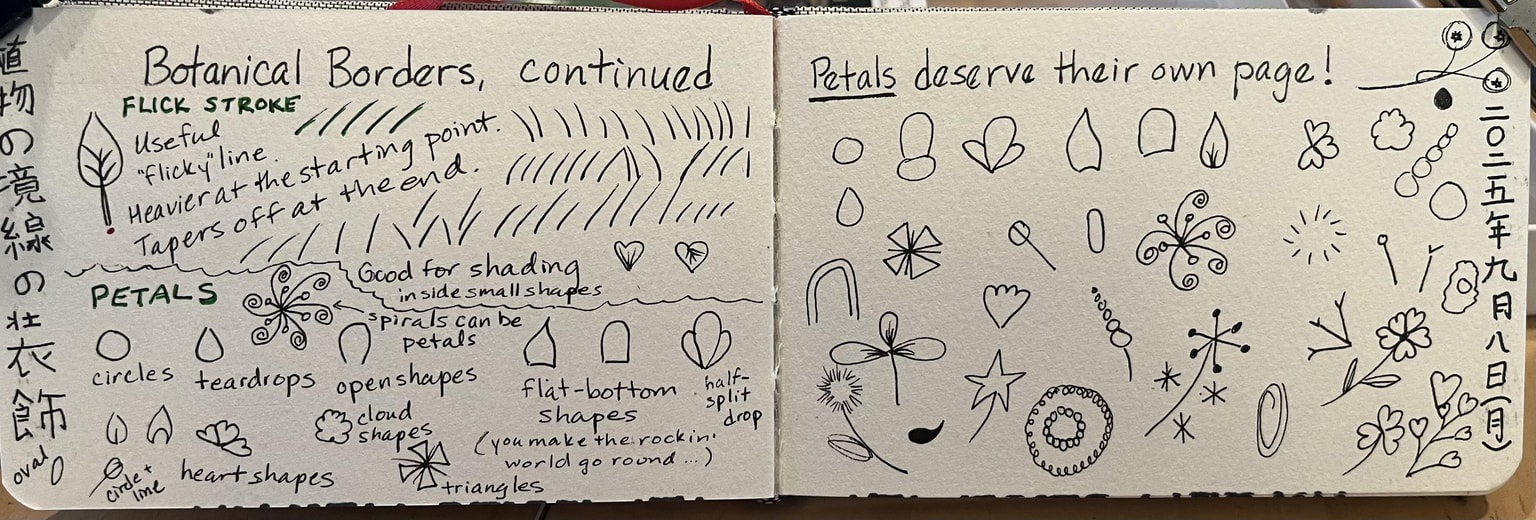 植物の境線の壮衣飾
Botanical Borders, continued
FLICK STROKE
Useful
"flicky" line.
Heavier at the starting point.
Tapers off at the end.
Good for shading
inside small shapes
PETALS
spirals can be
petals
circles
teardrops
open shapes
flat-bottom
shapes
(you make the rockin'
world go round ...)
half-
split
drop
cloud
shapes
oval
circle +
line
heart shapes
triangles
Petals deserve their own page!
二〇二五年九月八日(月)